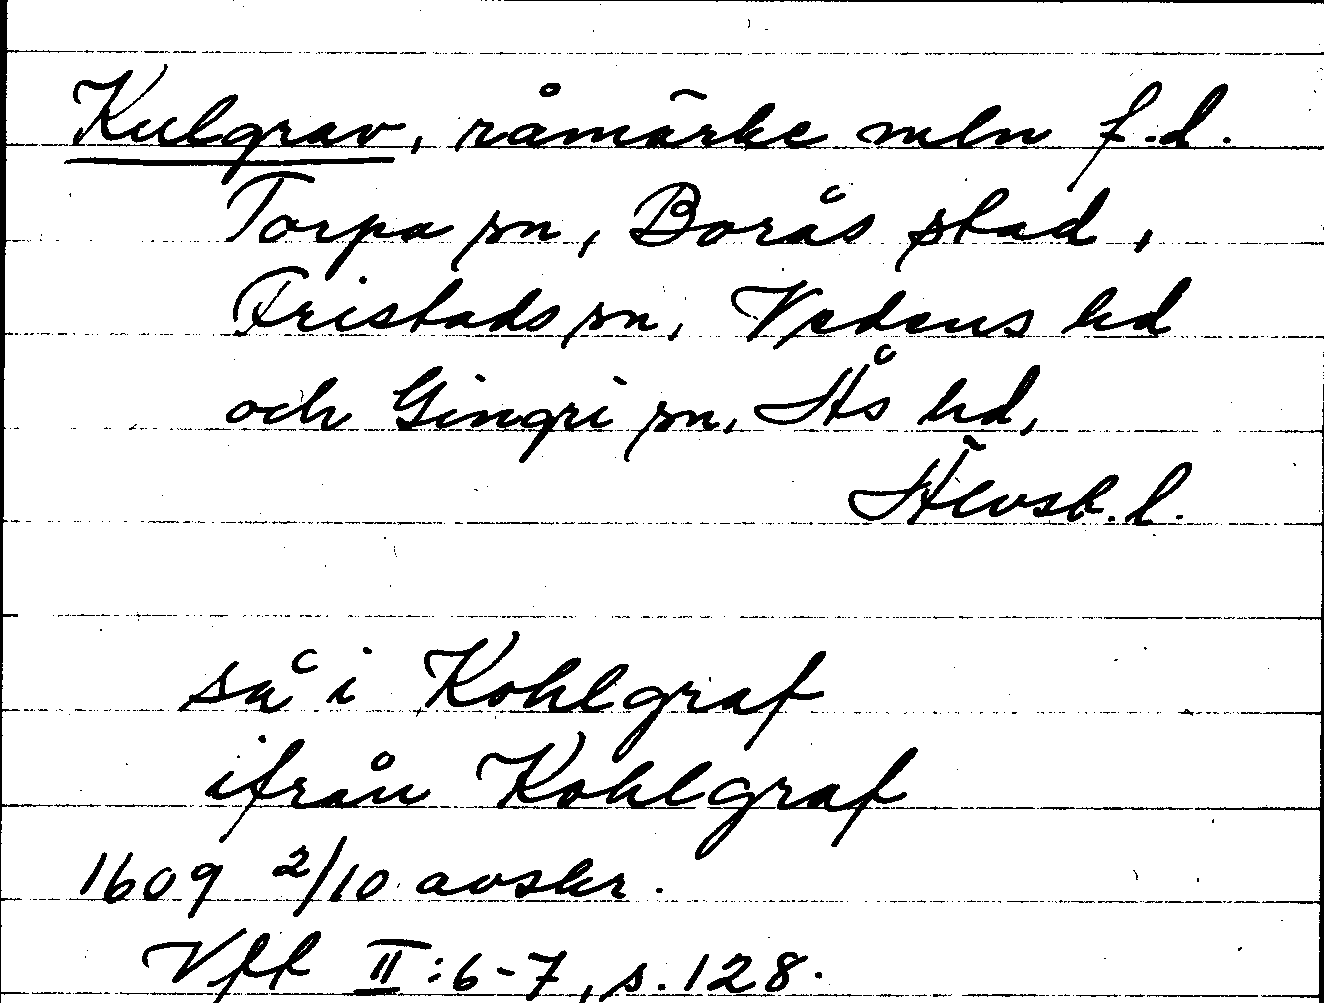 Kulgrav, råmärke mln f.d.
Torpa sn, Borås stad,
Fristads sn, Vedens hd
och Gingri sn, Ås hd,
Älvsb. l.
så i Kohlgraf
ifrån Kohlgraf
1609 2/10 avskr.
Vff II:6-7, s. 128.